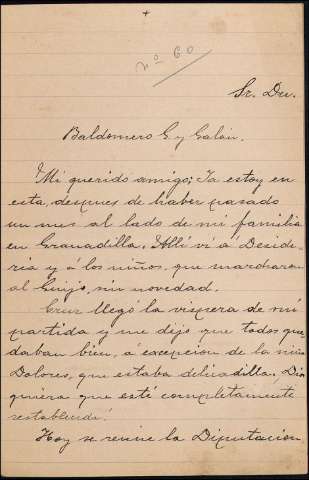 +
nº 60
Sr. Dn.
Baldomero G. y Galán.
Mi querido amigo: Ya estoy en
esta, despues de haber pasado
un mes al lado de mi familia
en Granadilla. Alli vi á Deside-
ria y á los niños, que marcharon
al Guijo, sin novedad.
Cruz llegó la vispera de mi
partida y me dijo que todos que-
daban bien, á excepcion de la niña
Dolores, que estaba delicadilla. Dios
quiera que esté completamente
restablecida.
Hoy se reune la Diputación